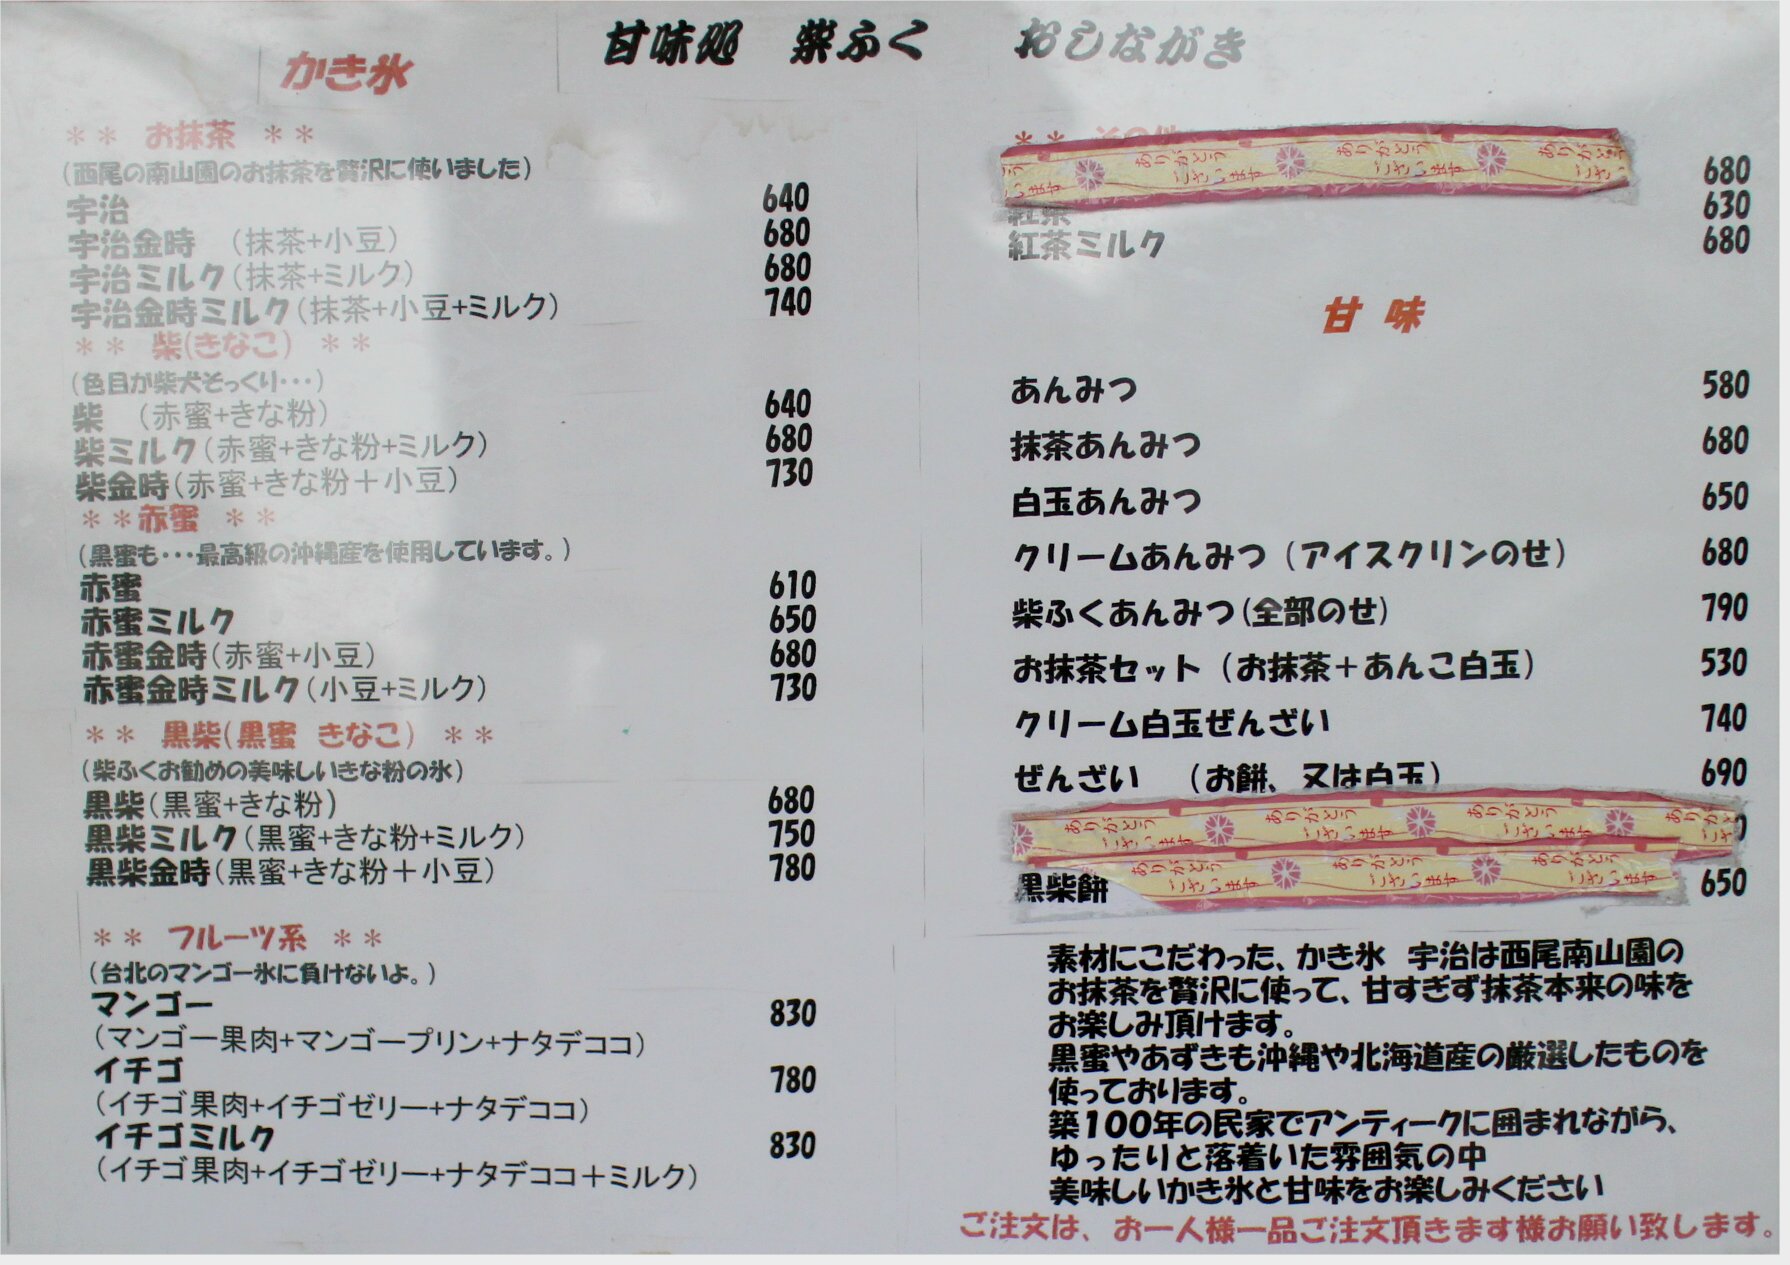 甘味処　柴ふく　おしながき
かき氷
＊＊　お抹茶　＊＊
(西尾の南山園のお抹茶を贅沢に使いました)
宇治 640
宇治金時　(抹茶+小豆) 680
宇治ミルク(抹茶+ミルク) 680
宇治金時ミルク(抹茶+小豆+ミルク) 740
＊＊　柴(きなこ)　＊＊
(色目が柴犬そっくり・・・)
柴　(赤蜜+きな粉) 640
柴ミルク(赤蜜+きな粉+ミルク) 680
柴金時(赤蜜+きな粉＋小豆) 730
＊＊赤蜜　＊＊
(黒蜜も・・・最高級の沖縄産を使用しています。)
赤蜜 610
赤蜜ミルク 650
赤蜜金時(赤蜜+小豆) 680
赤蜜金時ミルク(小豆+ミルク) 730
＊＊　黒柴(黒蜜 きなこ)　＊＊
(柴ふくお勧めの美味しいきな粉の氷)
黒柴(黒蜜+きな粉) 680
黒柴ミルク(黒蜜+きな粉+ミルク) 750
黒柴金時(黒蜜+きな粉＋小豆) 780
＊＊　フルーツ系　＊＊
(台北のマンゴー氷に負けないよ。)
マンゴー 830
(マンゴー果肉+マンゴープリン+ナタデココ)
イチゴ 780
(イチゴ果肉+イチゴゼリー+ナタデココ)
イチゴミルク 830
(イチゴ果肉+イチゴゼリー+ナタデココ＋ミルク)
＊＊　その他
ありがとうございます ありがとうございます ありがとうございます
680
紅茶 630
紅茶ミルク 680
甘 味
あんみつ 580
抹茶あんみつ 680
白玉あんみつ 650
クリームあんみつ (アイスクリンのせ) 680
柴ふくあんみつ(全部のせ) 790
お抹茶セット (お抹茶＋あんこ白玉) 530
クリーム白玉ぜんざい 740
ぜんざい　(お餅、又は白玉) 690
ありがとうございます ありがとうございます ありがとうございます ありがとうございます
ありがとうございます ありがとうございます ありがとうございます
黒柴餅 650
素材にこだわった、かき氷　宇治は西尾南山園の
お抹茶を贅沢に使って、甘すぎず抹茶本来の味を
お楽しみ頂けます。
黒蜜やあずきも沖縄や北海道産の厳選したものを
使っております。
築100年の民家でアンティークに囲まれながら、
ゆったりと落着いた雰囲気の中
美味しいかき氷と甘味をお楽しみください
ご注文は、お一人様一品ご注文頂きます様お願い致します。